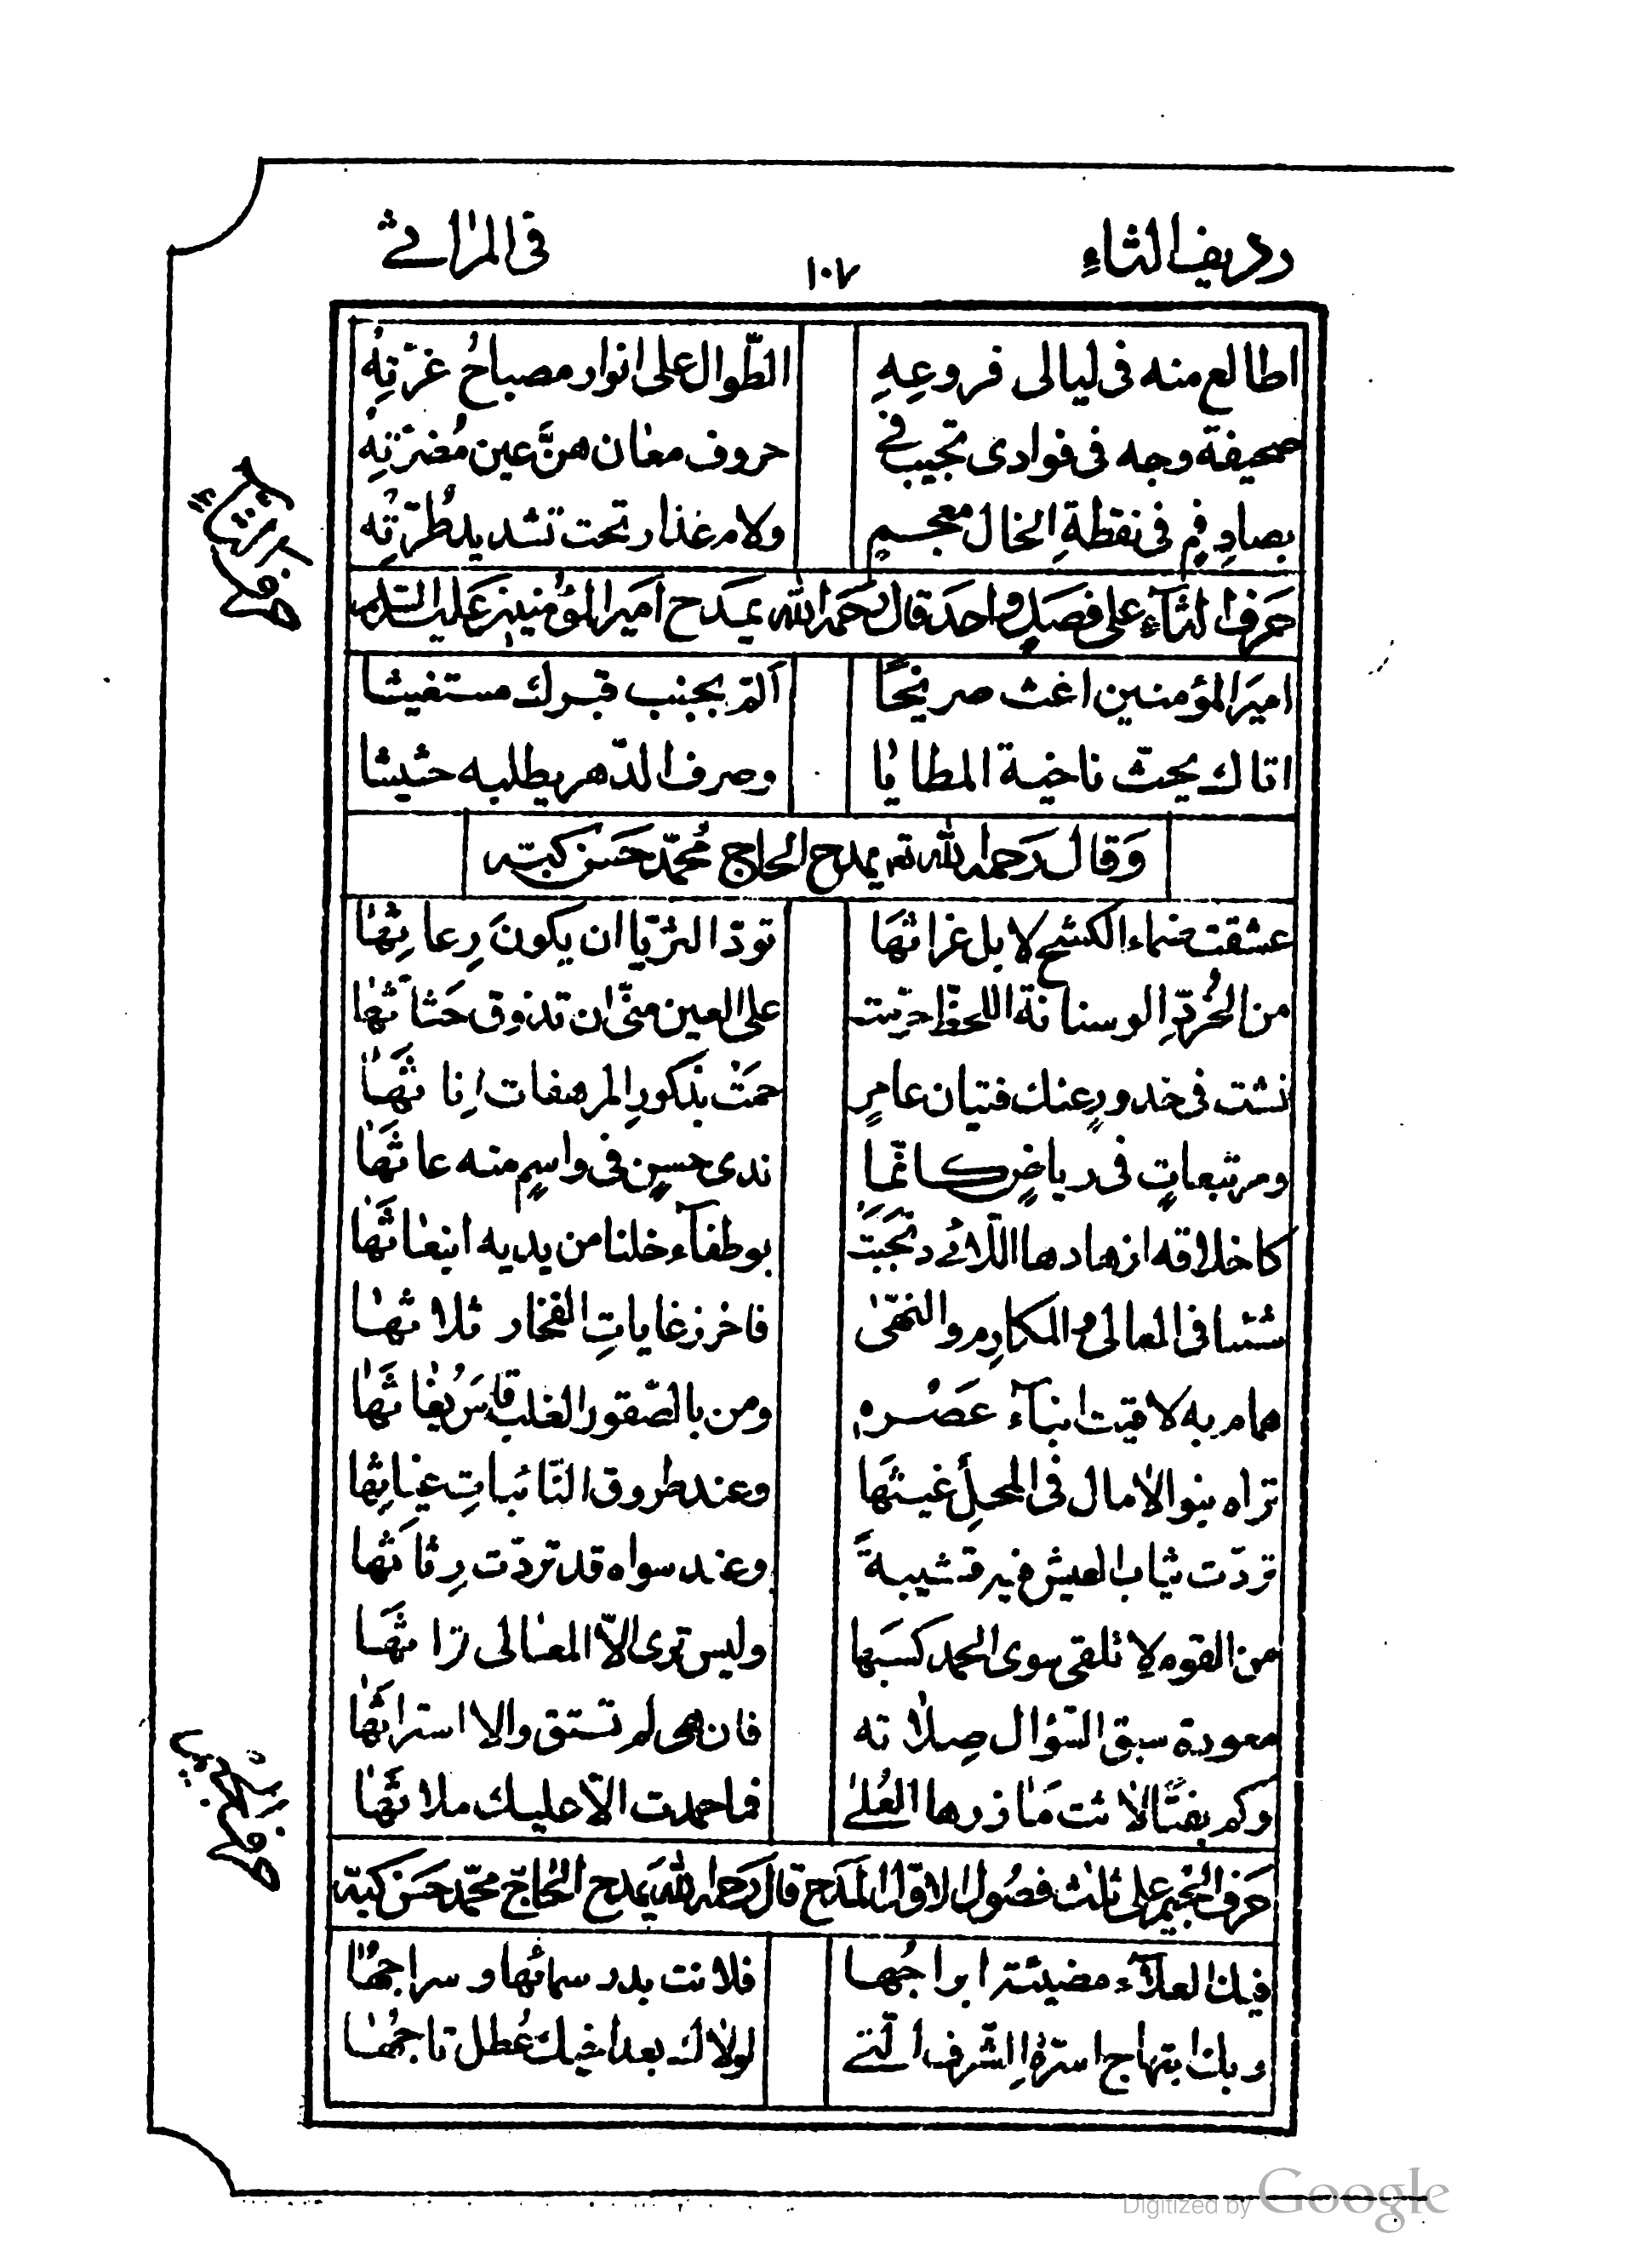 رديف الثاء ١٠٧ فى المراثے
اطالع منه فى ليالى فروعِهِ الطّوال على انوار مصباحُ غرّتِهِ
صحيفة وجه فى فوادى تجيب فے حروف معان هنَّ عين مُضرّتِهِ
بصادِ فمٍ فى نقطةِ الخال معجمٍ ولام عذار تحت تشديد طُرّتِه
حَرف الثآء على فصَلٍ واحد قال رَحمَه الله يمدَح امَير المؤمنين عَليه السّلام
اميَر المؤمنين اغث صريخًا آلمّ بجنب قبرك مستغيثا
اتاك يحثّ ناخية المطايا وصرف الدّهر يطلبه حثيثا
وَقال رَحمه الله تع يمدح الحاج مُحمّد حَسَن كبّه
عشقت ضماء الكشح لا بل غراثهَا تودّ الثريّا ان يكونَ رِعاثِهَا
من الخُرّدِ الوسنانة اللحظ حرّمت على العين منّى ان تذوق حَثاثَها
نشت فى خدورٍ عنك فتيان عامرٍ حمَتْ بذكورِ المرهفات اِناثهَا
ومرتبعاتٍ فى رياضٍ كانمّا ندى حسينٍ فى واسمٍ منه عاثهَا
كاخلاقه ازهارها اللّائے دبّجَتْ بوطفآء خلنا من يديه انبعاثهَا
شئا فى المعالى والمكارِم والنهّى فاحرز غاياتِ الفخار ثلاثهَا
همام به لاقيت ابنآء عَصْرهِ ومن بالصّقور الغلب قاسَ بُغاثهَا
تراه بنوا الآمال فى المحلِ غيثهَا وعند طروق النّائباتِ غياثِها
تردّت ثياب العيش فيه قشيبةً وعند سواه قد تردّت رِثاثَها
من القوم لا تلقى سوى الحمد كسَبها وليس ترى الّا المعالى تراثهَا
معودة سبق السّؤال صِلاته فان هى لم تستق والا استراثهَا
وكم بفتًا لاثت مَاٰزرها العُلےٰ فما حمدت الّا عليك ملاثهَا
حَرف الجيم على ثلث فصُول الاوّل المدَح قال رَحمه الله يمَدح الحٰاجّ محّمد حَسَن كبّة
فيك العلآء مضيئة ابراجُهَا فلانت بدر سمائها وسراجهُا
وبك ابتهاج اسرّة الشّرف الّتے لولاك بعد اخيك عُطل تاجهُا
حرف الثاء
حرف الجيم
Digitized by Google